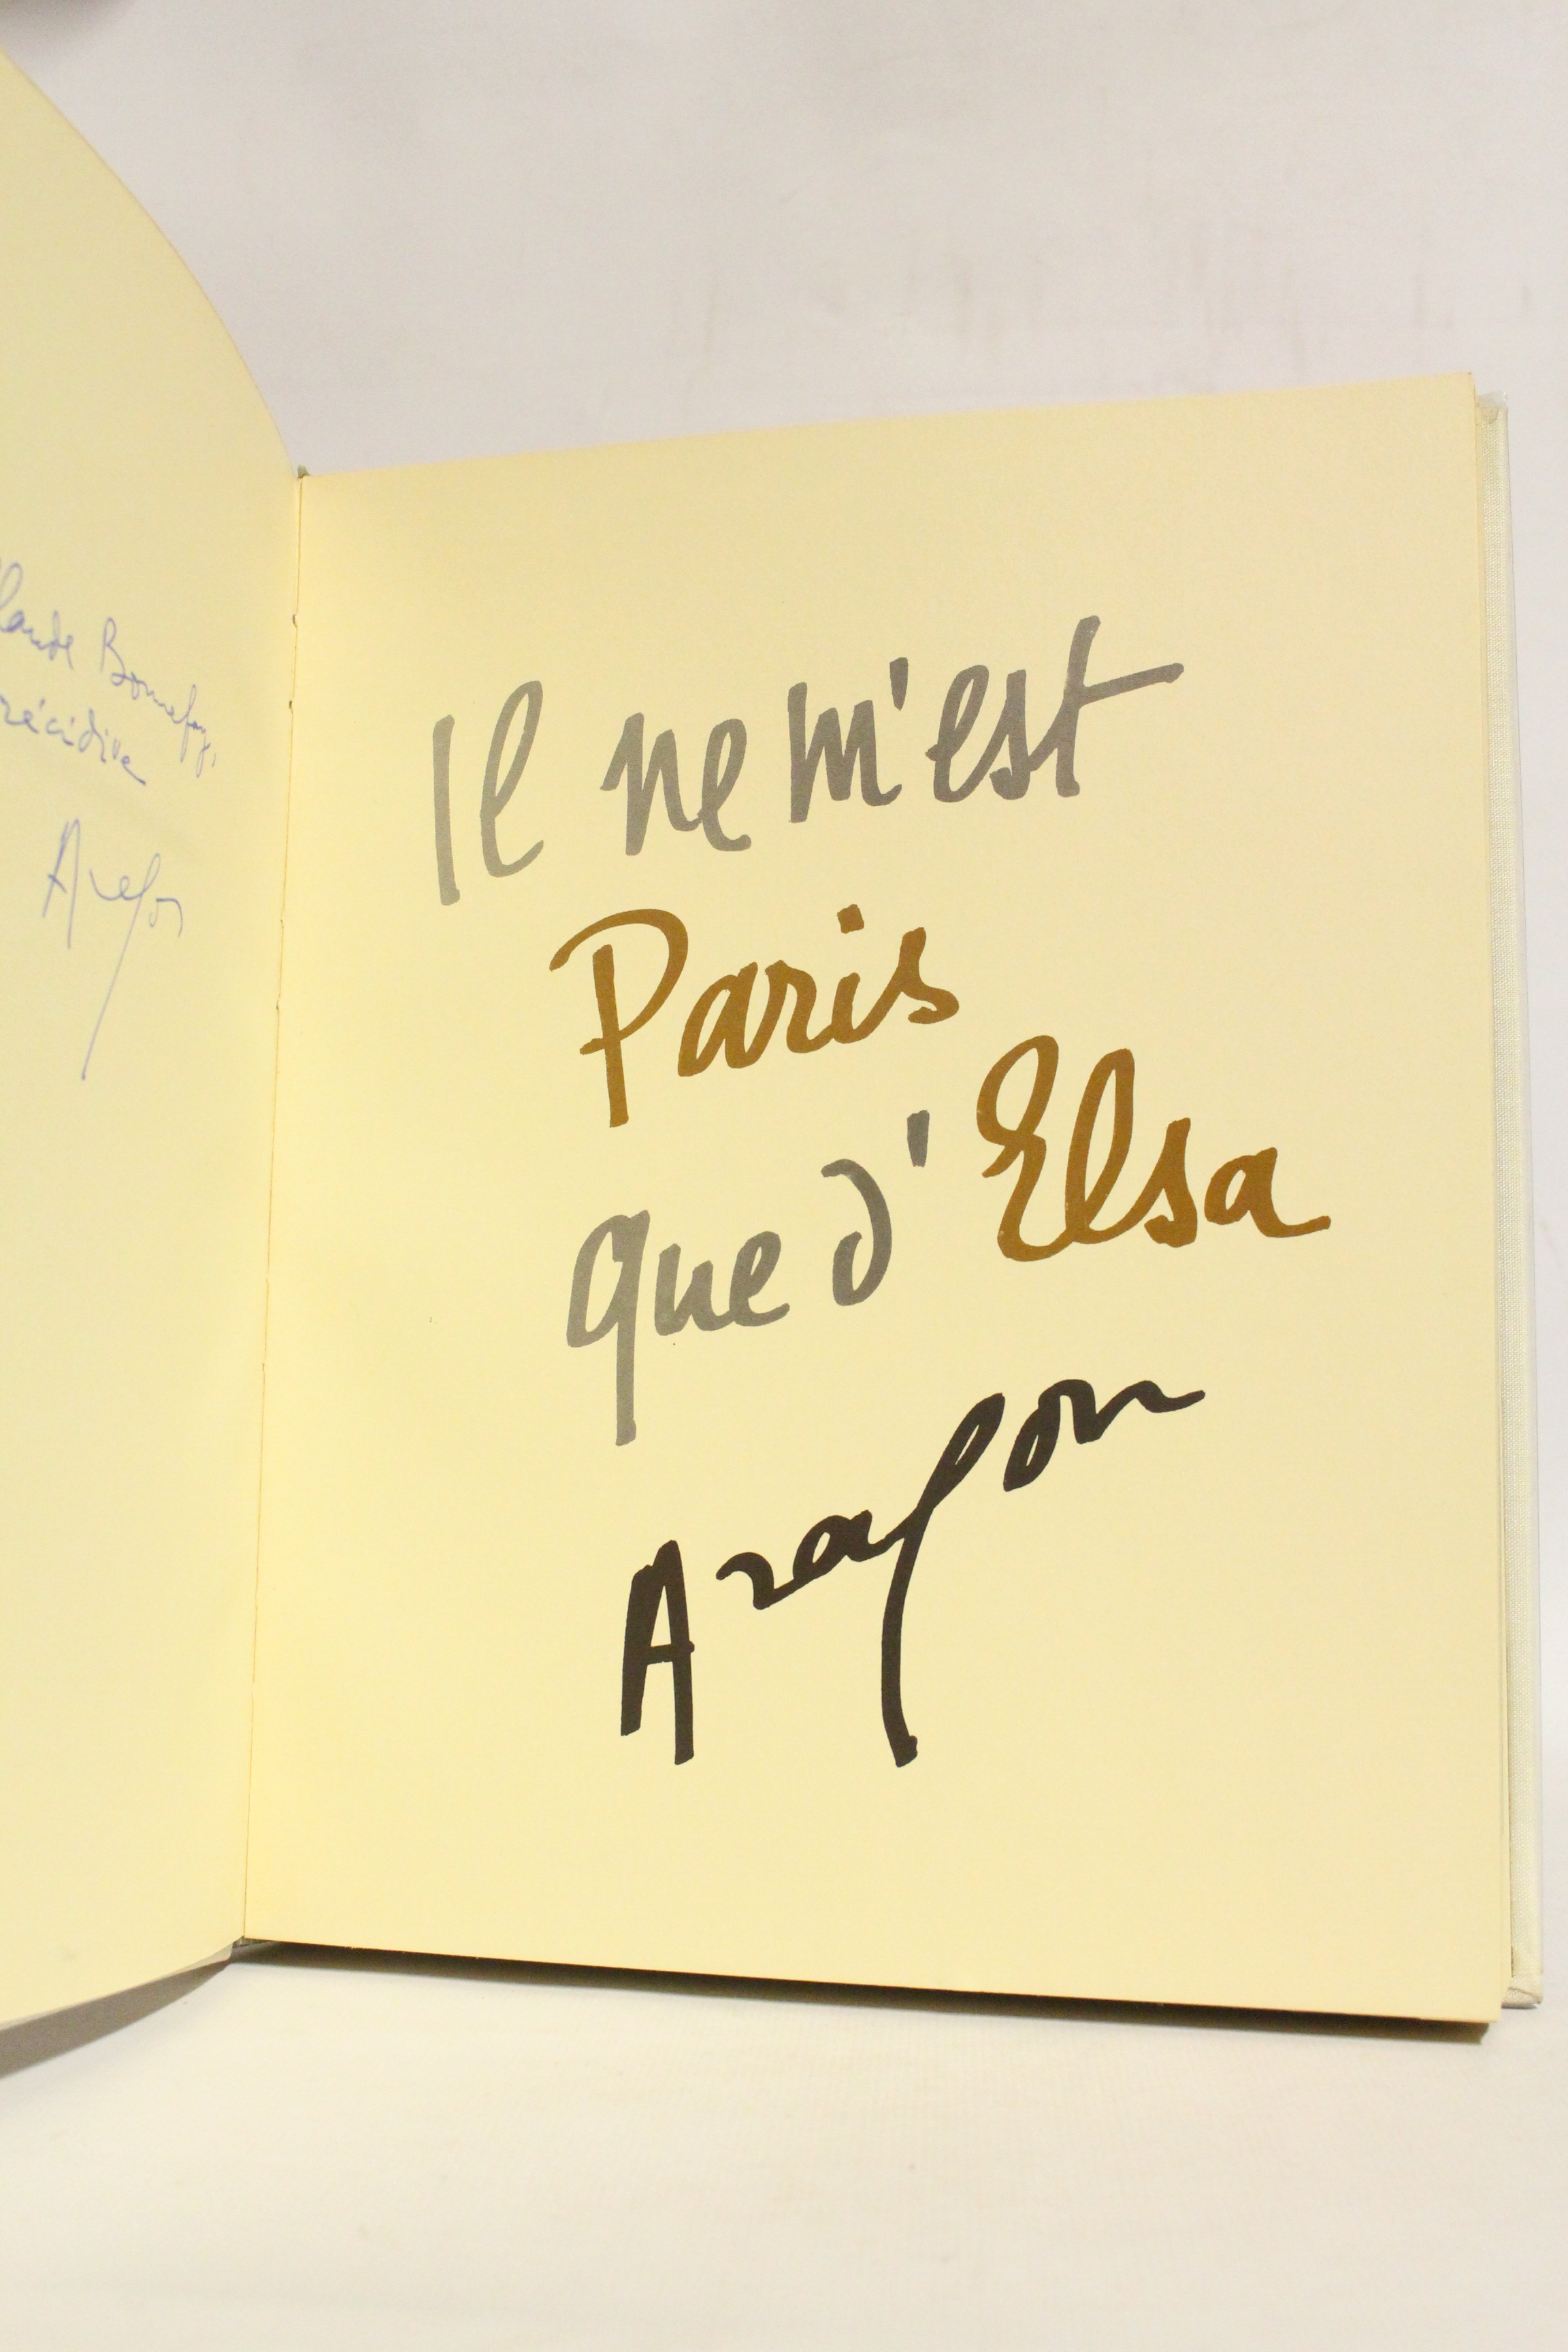 laude Bonnefoy,
récidive
Aragon
Il ne m'est
Paris
que d'Elsa
Aragon